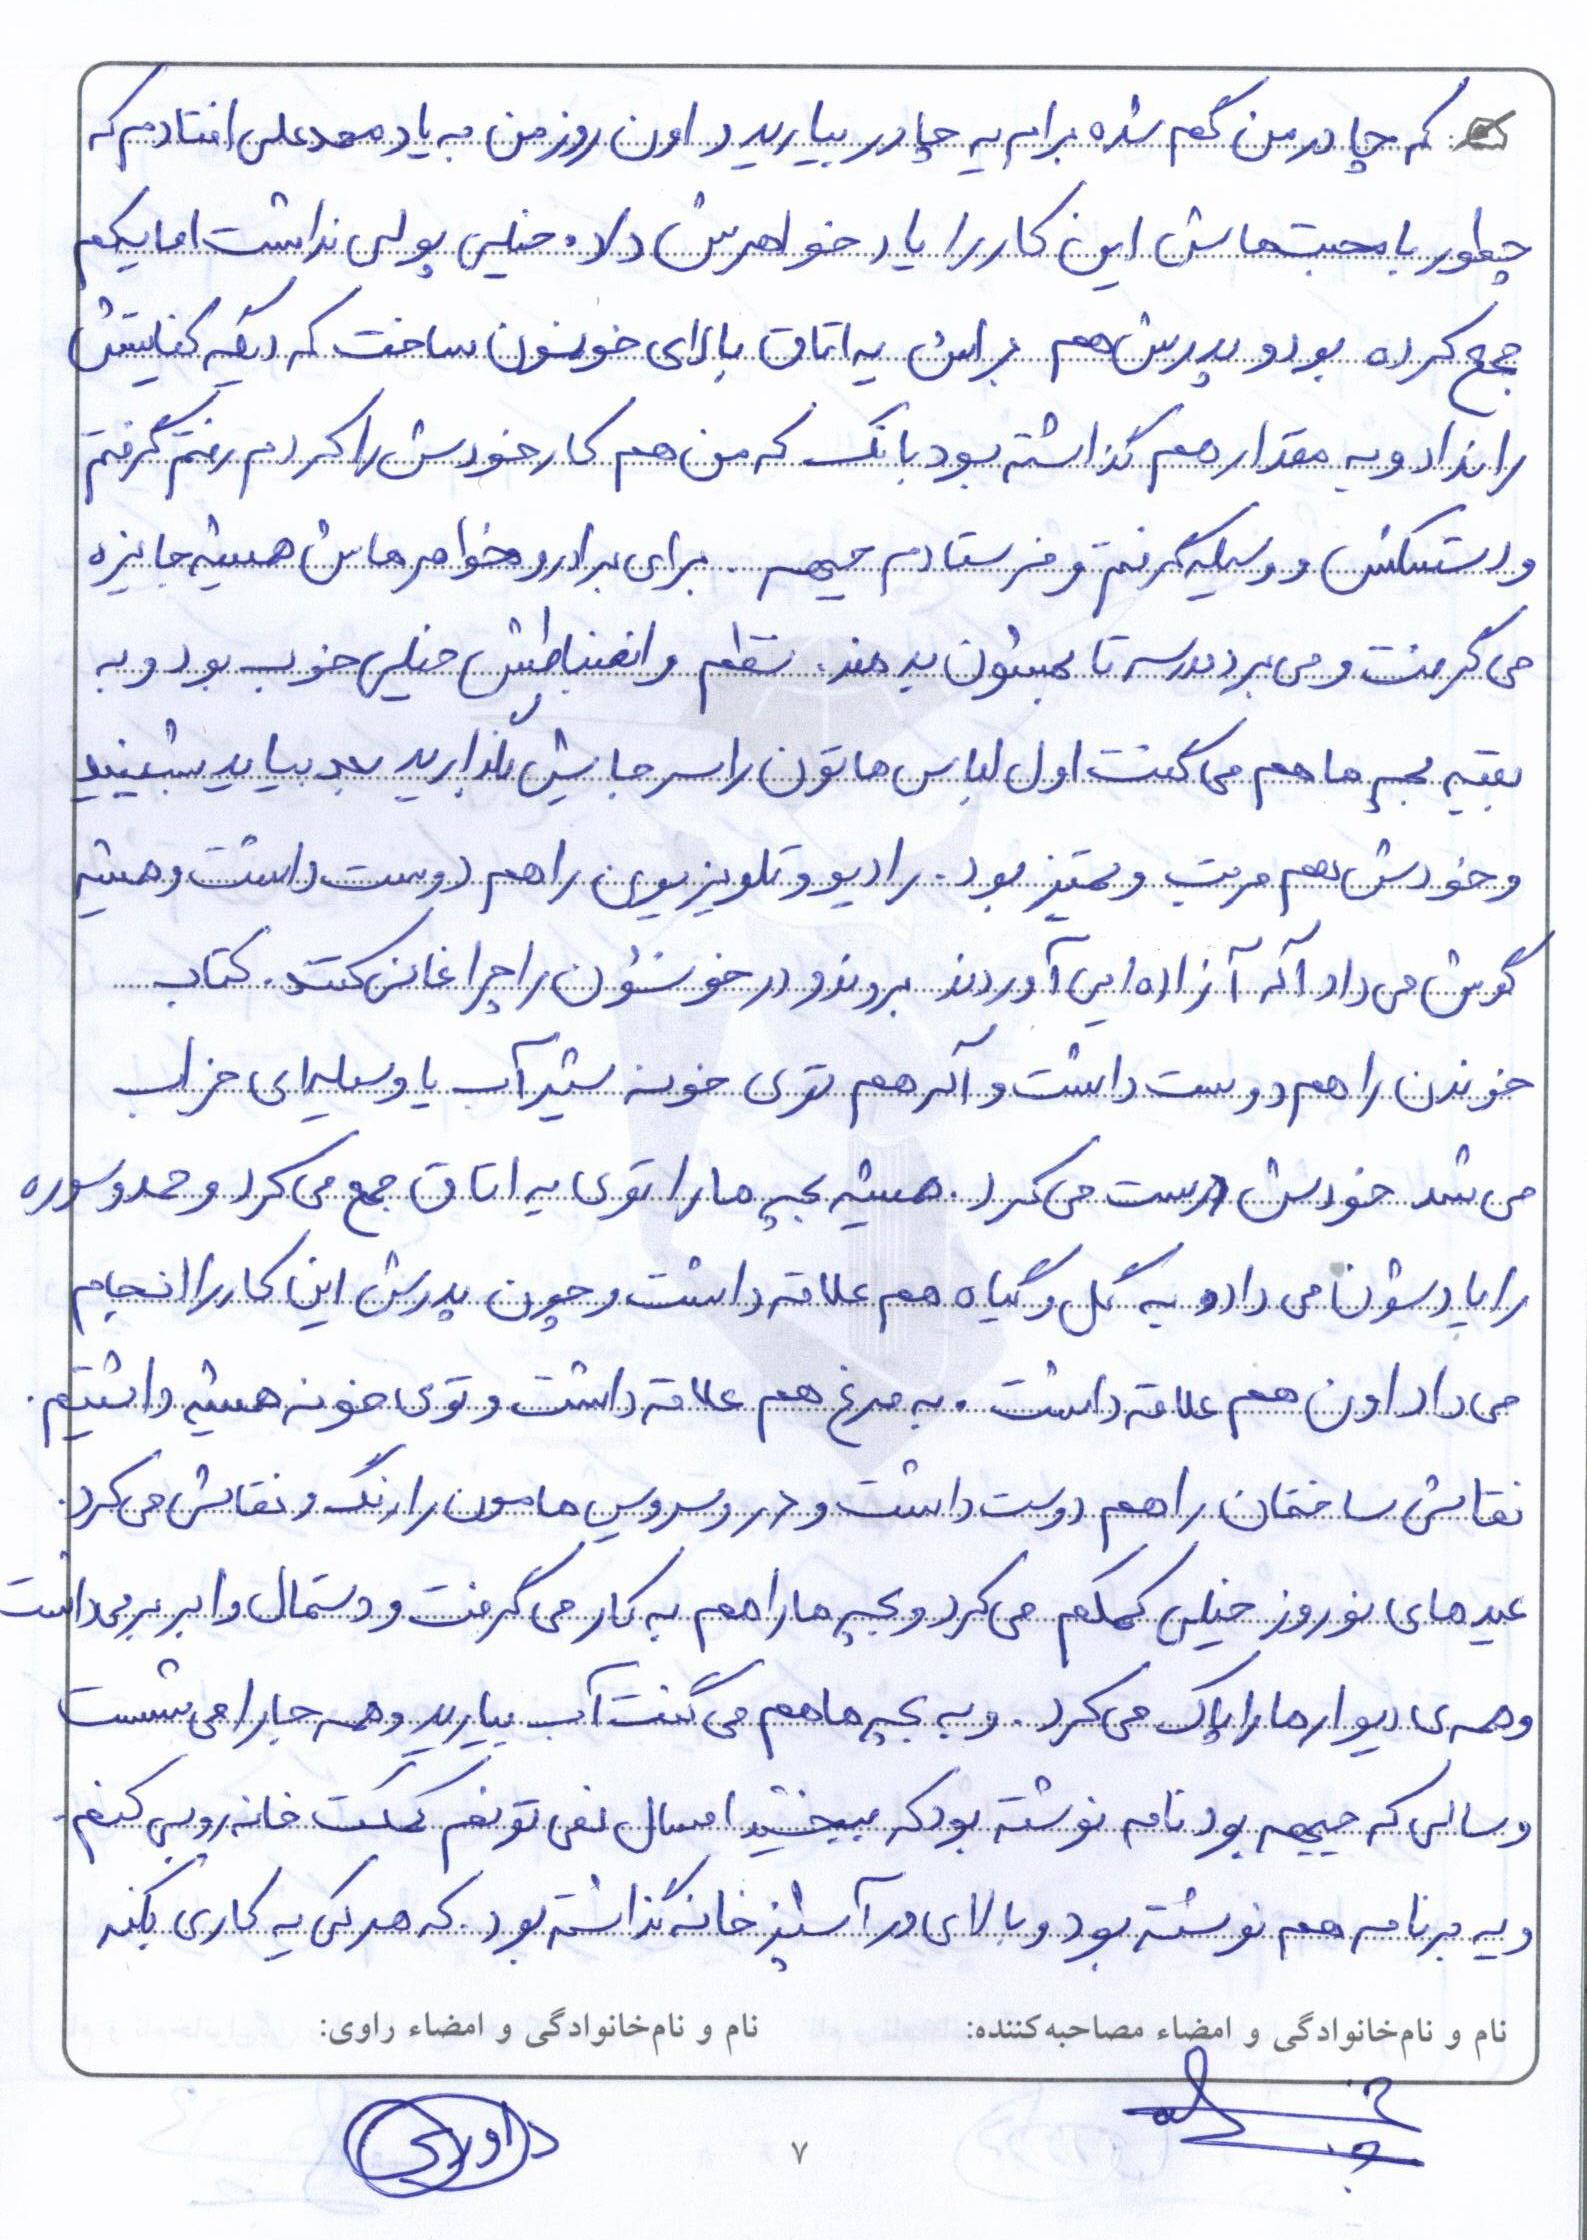 که چادر من گم شده برام یه چادر بیارید و اون روز من به یاد محمدعلی افتادم که
چطور با محبت هاش این کار را یاد خواهرش داد. خیلی پولی نداشت اما یکم
جمع کرده بود و پدرش هم براش یه اتاق بالای خونمون ساخت که دیگه کفایتش
را نداد و یه مقدار هم گذاشته بود بانک که من هم کار خودش را کردم رفتم گرفتم
و دستکش و وسیله گرفتم و فرستادم جبهه. برای برادر و خواهرهاش همیشه جایزه
می گرفت و می برد مدرسه تا بهشون بدهند. نظم و انضباطش خیلی خوب بود و به
بقیه بچه ها هم می گفت اول لباس هاتون را سر جایش بگذارید بعد بیاید بشینید
و خودش هم مرتب و تمیز بود. رادیو و تلویزیون را هم دوست داشت و همیشه
گوش می داد اگه آزاده ایی آوردند بروند و در خونشون را چراغانی کنند. کتاب
خوندن را هم دوست داشت و اگر هم توی خونه شیر آب یا وسیله ای خراب
می شد خودش درست می کرد. همیشه بچه ها را توی یه اتاق جمع می کرد و حمد و سوره
را یادشون می داد و به گل و گیاه هم علاقه داشت و چون پدرش این کار را انجام
می داد اون هم علاقه داشت. به مرغ هم علاقه داشت و توی خونه همیشه داشتیم.
نقاشی ساختمان را هم دوست داشت و در و سرویس هامون را رنگ و نقاشی می کرد.
عیدهای نوروز خیلی کمکم می کرد و بچه ها را هم به کار می گرفت و دستمال و ابر بر می داشت
و همه ی دیوارها را پاک می کرد. و به بچه ها هم می گفت آب بیارید و همه جا را می شست
و سالی که جبهه بود نامه نوشته بود که ببخشید امسال نمی تونم کمکت خانه روبی کنم.
و یه برنامه هم نوشته بود و بالای در آشپزخانه گذاشته بود. که هر کی یه کاری بکنه
نام و نام‌خانوادگی و امضاء مصاحبه‌کننده:
نام و نام‌خانوادگی و امضاء راوی:
داوری
۷